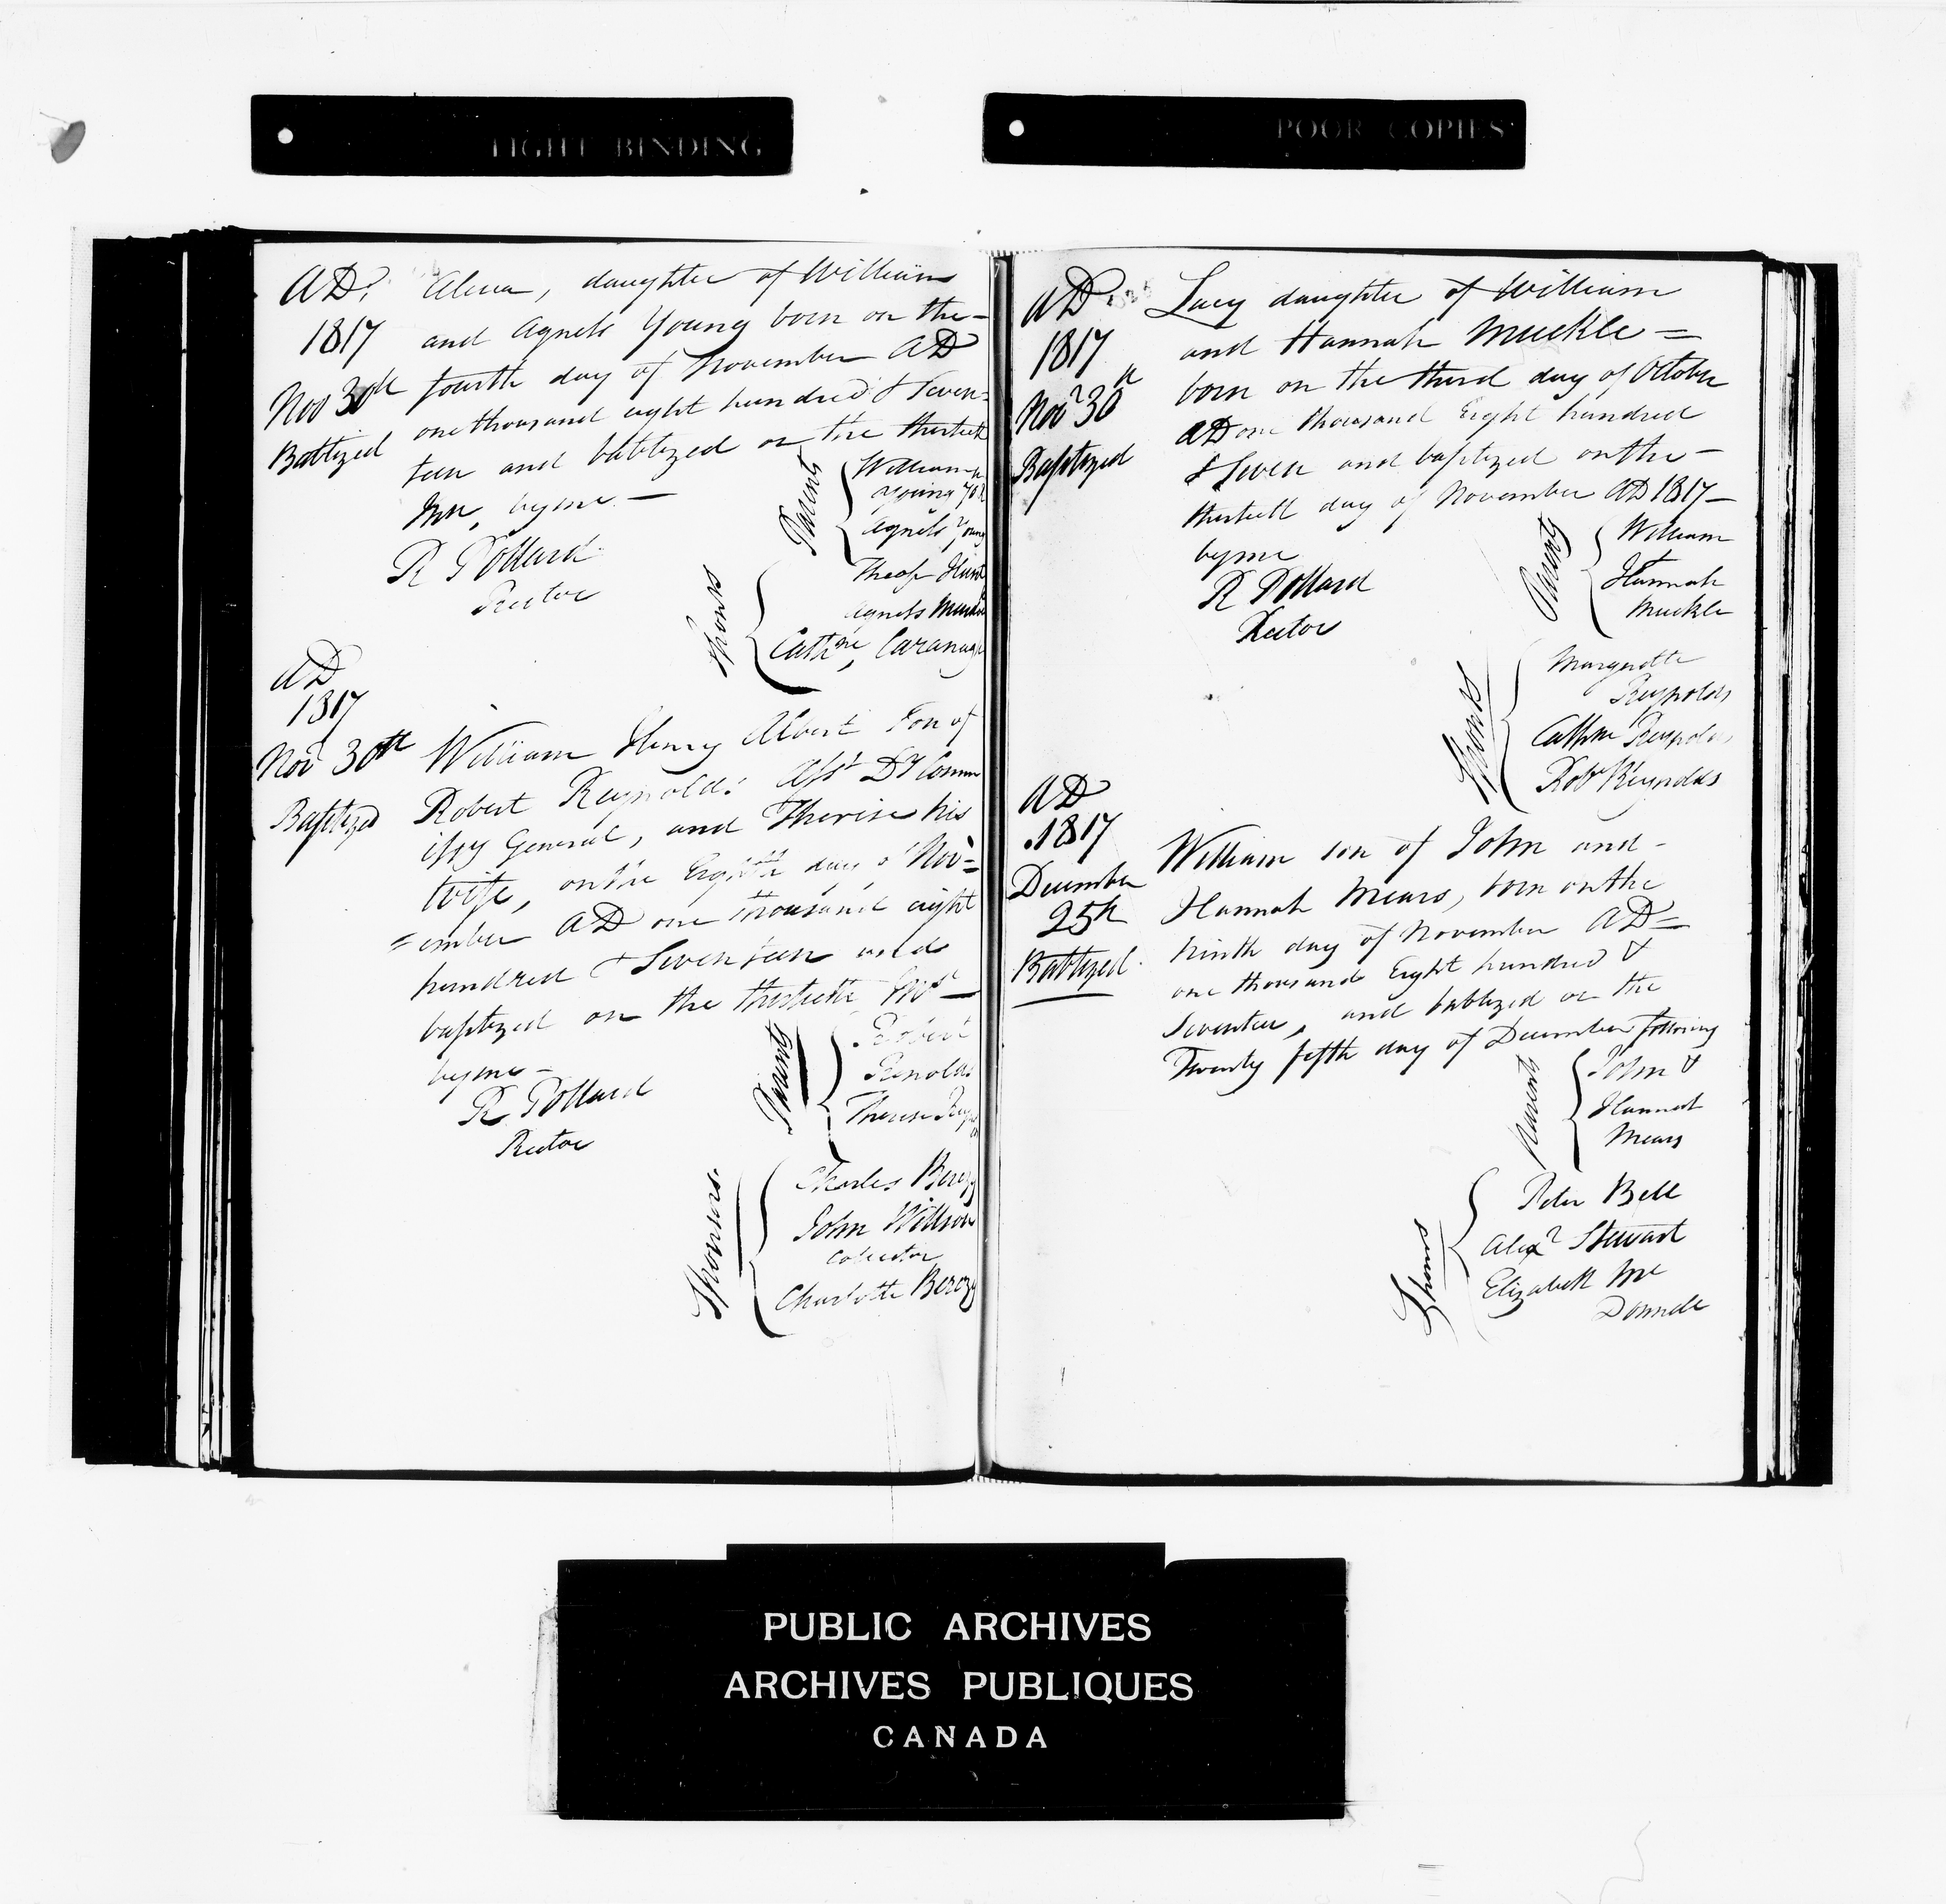 TIGHT BINDING
POOR COPIES
AD.
1817
Nov 30th
Babtized
daughter of William
and Agness Young born on the-
fourth day of November AD
one thousand eight hundred & Seven-
teen and babtized on the thirtieth
by me —
R Pollard
Rector
Parents
William
Young
Agness Young
Sponrs
Theop
Agness
Cathne, Cavanagh
AD
1817
Nov 30th
Baptized
William Henry Albert Son of
Robert Reynolds Asst Dy Comm
issy General, and Therise his
Wife, on the Eighth day of Nov=
=ember AD one thousand eight
hundred & Seventeen and
baptized on the thirtieth
by me -
R Pollard
Rector
Parents
Robert
Renolds
Therese
Sponsors.
Charles Berczy
John Willson
Collector
Charlotte Berczy
AD
1817
Novr 30th
Baptized
Lucy daughter of William
and Hannah Muckle =
born on the third day of October
AD one thousand Eight hundred
& Seven and baptized on the -
thirtieth day of November AD 1817 -
by me
R Pollard
Rector
Parents
William
Hannah
Muckle
Sponrs
Margrette
Reynolds
Cathne Reynolds
Robt Reynolds
AD
1817
December
25th
Babtized.
William son of John and -
Hannah Mears, born on the
ninth day of November AD =
one thousand Eight hundred &
Seventeen, and babtized on the
Twenty fifth day of December following
Parents
John &
Hannah
Mears
Sponrs
Peter Bell
Alexr Stewart
Elizabeth Mc
Donnell
PUBLIC ARCHIVES
ARCHIVES PUBLIQUES
CANADA